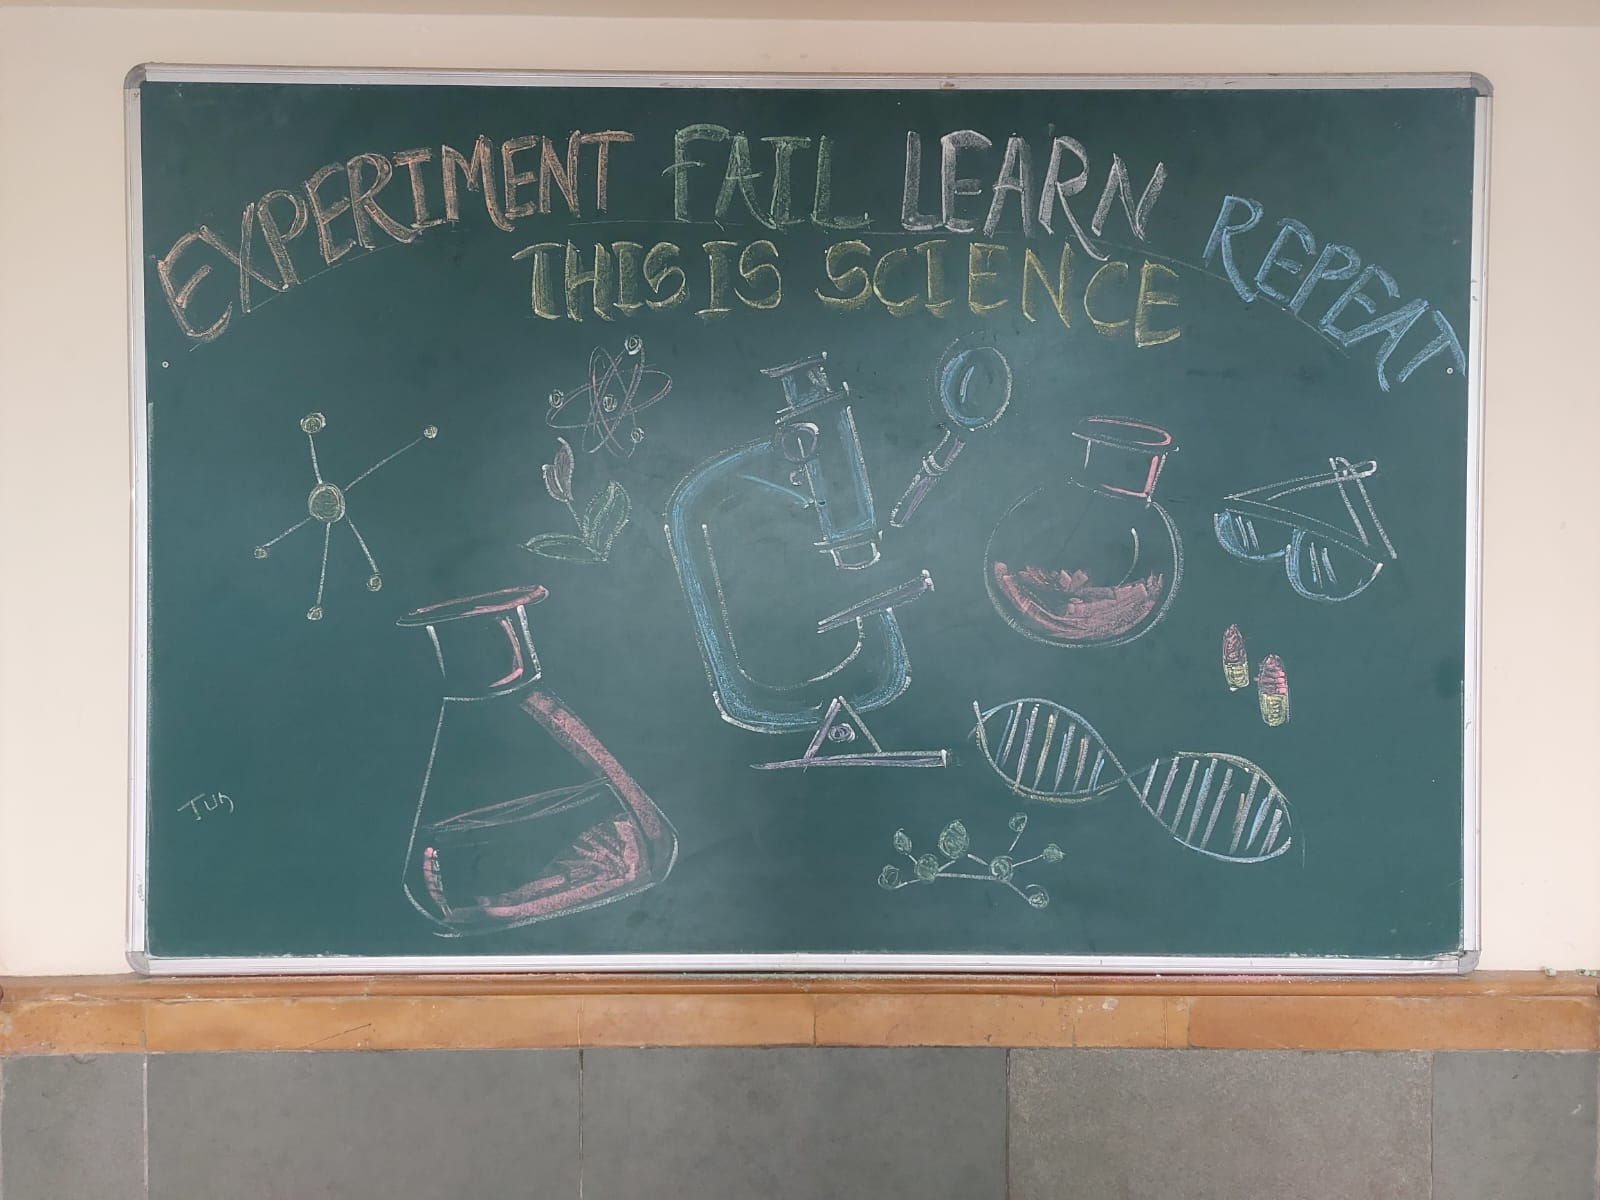 EXPERIMENT FAIL LEARN REPEAT
THIS IS SCIENCE